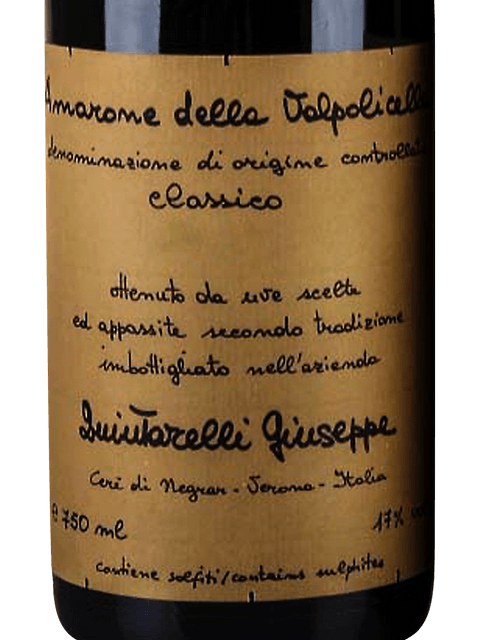 Amarone della Valpolicella
denominazione di origine controllata
classico
ottenuto da uve scelte
ed appassite secondo tradizione
imbottigliato nell'azienda
Quintarelli Giuseppe
Cerè di Negrar - Verona - Italia
e 750 ml
17% vol
contiene solfiti/contains sulphites